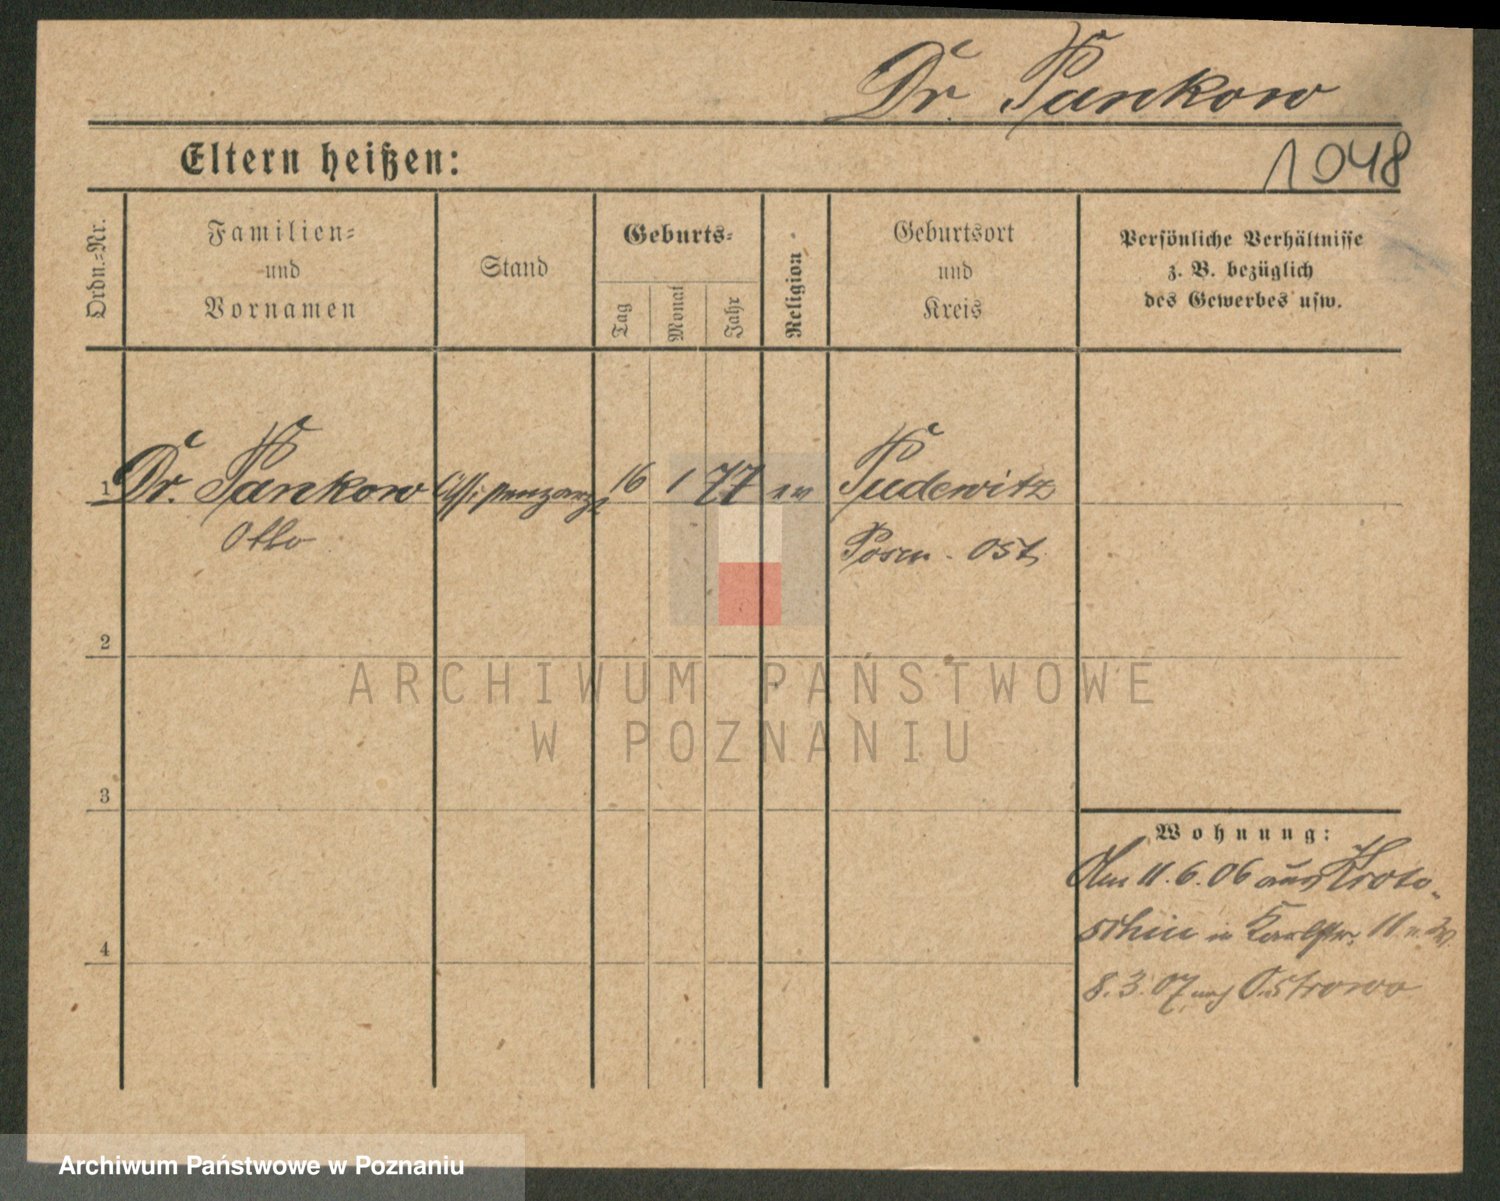 Dr. Pankow
1048
Eltern heißen:
Ordn.=Nr.
Familien=
und
Vornamen
Stand
Geburts=
Tag
Monat
Jahr
Religion
Geburtsort
und
Kreis
Persönliche Verhältnisse
z. B. bezüglich
des Gewerbes usw.
1 Dr. Pankow Assistenzarzt 16 1 77 ev Pudewitz
Otto Posen - Ost
2
3
4
Wohnung:
Am 11.6.06 aus Kroto-
schin in Karlstr. 11
8.3.07 nach Ostrowo
ARCHIWUM PAŃSTWOWE
W POZNANIU
Archiwum Państwowe w Poznaniu